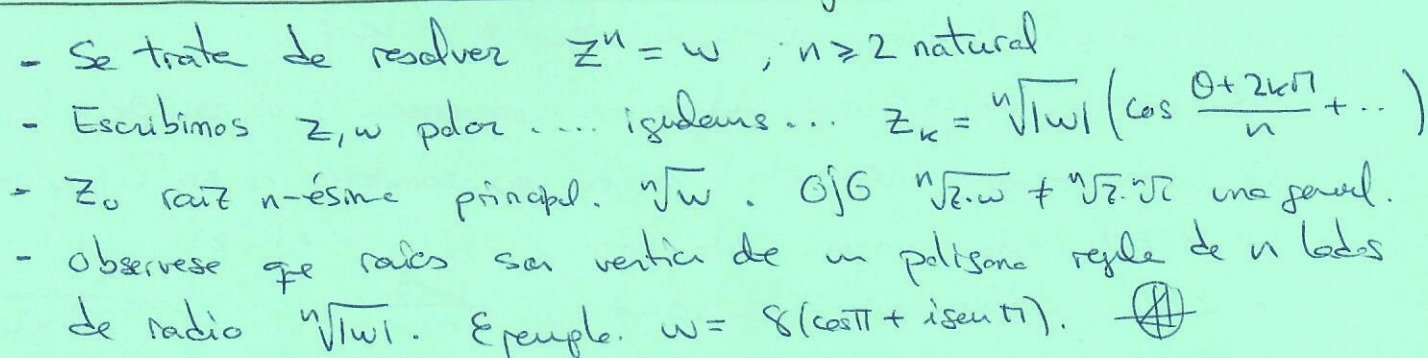 - Se trata de resolver Z^n = w ; n ≥ 2 natural
- Escribimos z, w polar .... igualamos ... Z_k = ⁿ√|w| (cos (θ + 2kπ)/n + ...)
- Z_0 raíz n-ésima principal. ⁿ√w . OjO ⁿ√z.w ≠ ⁿ√z.ⁿ√ general.
- Observese que raíces son vertices de un polígono regular de n lados
de radio ⁿ√|w|. Ejemplo. w = 8(cosπ + i sen π).